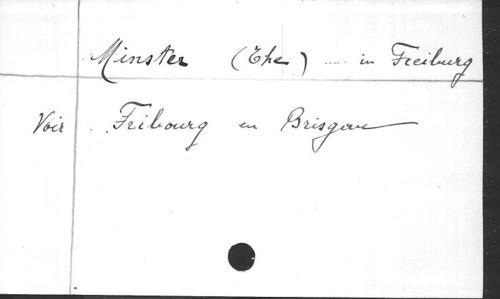 Minster (The) ..... in Freiburg
Voir Fribourg en Brisgau